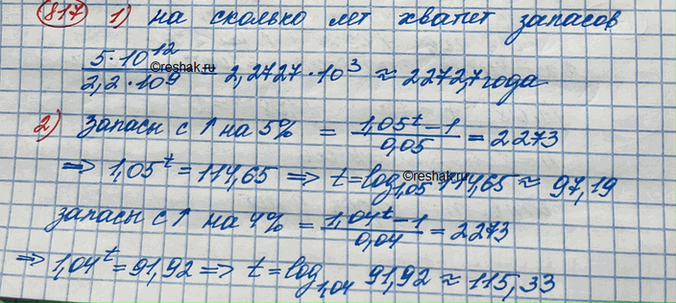 817 1) на сколько лет хватит запасов
5·10^12 / 2,2·10^9 = 2,2727·10^3 ≈ 2272,7 года
©reshak.ru
2) Запасы с ↑ на 5% = (1,05^t − 1) / 0,05 = 2273
⇒ 1,05^t = 114,65 ⇒ t = log_1,05 114,65 ≈ 97,19
©reshak.ru
запасы с ↑ на 4% = (1,04^t − 1) / 0,04 = 2273
⇒ 1,04^t = 91,92 ⇒ t = log_1,04 91,92 ≈ 115,33